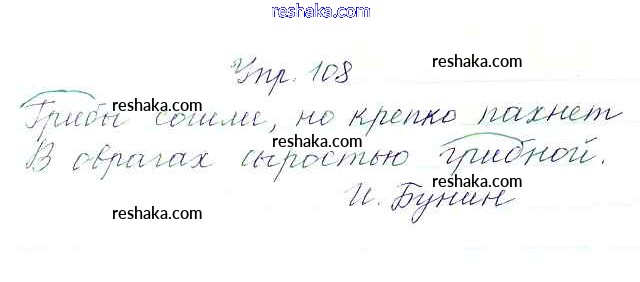 reshaka.com
Упр. 108
reshaka.com
reshaka.com
Грибы сошли, но крепко пахнет
reshaka.com
reshaka.com
В оврагах сыростью грибной.
reshaka.com
И. Бунин
reshaka.com
reshaka.com